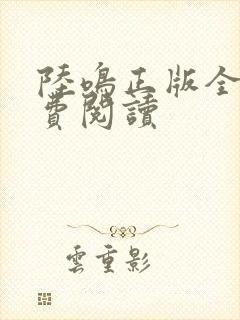 陸鳴正版全
費閱讀
雲重影